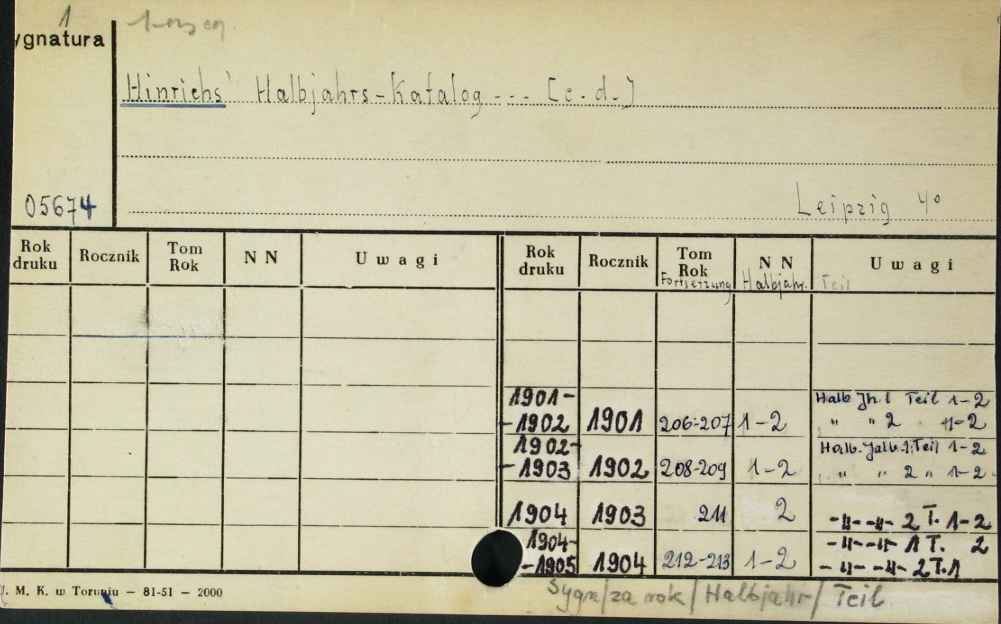 1
ygnatura
Hinrichs' Halbjahrs-Katalog --- [c.d.]
05674
Leipzig 4°
Rok druku Rocznik Tom Rok NN Uwagi Rok druku Rocznik Tom Rok NN Uwagi
Fortsetzung Halbjahr. Teil
1901- Halb Jh. 1 Teil 1-2
-1902 1901 206-207 1-2 " " 2 " 1-2
1902- Halb. 1. Teil 1-2
-1903 1902 208-209 1-2 " " 2 " 1-2
1904 1903 211 2 -"- -"- 2 T. 1-2
1904- -"- -"- 1 T. 2
-1905 1904 212-213 1-2 -"- -"- 2 T. 1
U. M. K. w Toruniu — 81-51 — 2000
Sygn/za rok/Halbjahr/Teil